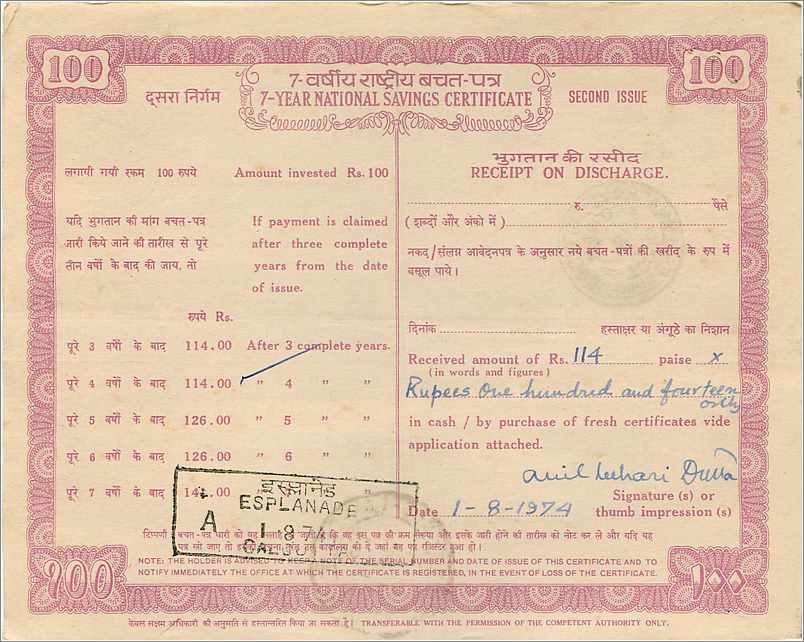 100
100
7-वर्षीय राष्ट्रीय बचत-पत्र
दूसरा निर्गम
7-YEAR NATIONAL SAVINGS CERTIFICATE
SECOND ISSUE
लगायी गयी रकम 100 रुपये
Amount invested Rs. 100
यदि भुगतान की मांग बचत-पत्र
जारी किये जाने की तारीख से पूरे
तीन वर्षों के बाद की जाय, तो
If payment is claimed
after three complete
years from the date
of issue.
रुपये Rs.
पूरे 3 वर्षो के बाद 114.00 After 3 complete years.
पूरे 4 वर्षो के बाद 114.00 " 4 " "
पूरे 5 वर्षो के बाद 126.00 " 5 " "
पूरे 6 वर्षो के बाद 126.00 " 6 " "
पूरे 7 वर्षो के बाद
भुगतान की रसीद
RECEIPT ON DISCHARGE.
रु. पैसे
(शब्दों और अंको में)
नकद/संलग्न आवेदनपत्र के अनुसार नये बचत-पत्रों की खरीद के रुप में
वसूल पाये।
दिनांक हस्ताक्षर या अंगूठे का निशान
Received amount of Rs. 114 paise x
(in words and figures)
Rupees One hundred and fourteen
only
in cash / by purchase of fresh certificates vide
application attached.
Dutta
Signature (s) or
Date 1-8-1974 thumb impression (s)
इस्प्लानेड
ESPLANADE
A 1 8 74
CALCUTTA
टिप्पणी बचत-पत्र धारी को यह कि वह इस पत्र की क्रम संख्या और इसके जारी होने की तारीख को नोट कर ले और यदि यह
पत्र खो जाए तो इस की सूचना तुरन्त उस कार्यालय को दे जहाँ वह पत्र रजिस्टर हुआ हो।
NOTE: THE HOLDER IS ADVISED TO KEEP A NOTE OF THE SERIAL NUMBER AND DATE OF ISSUE OF THIS CERTIFICATE AND TO
NOTIFY IMMEDIATELY THE OFFICE AT WHICH THE CERTIFICATE IS REGISTERED, IN THE EVENT OF LOSS OF THE CERTIFICATE.
१००
केवल सक्षम अधिकारी की अनुमति से हस्तान्तरित किया जा सकता है। TRANSFERABLE WITH THE PERMISSION OF THE COMPETENT AUTHORITY ONLY.